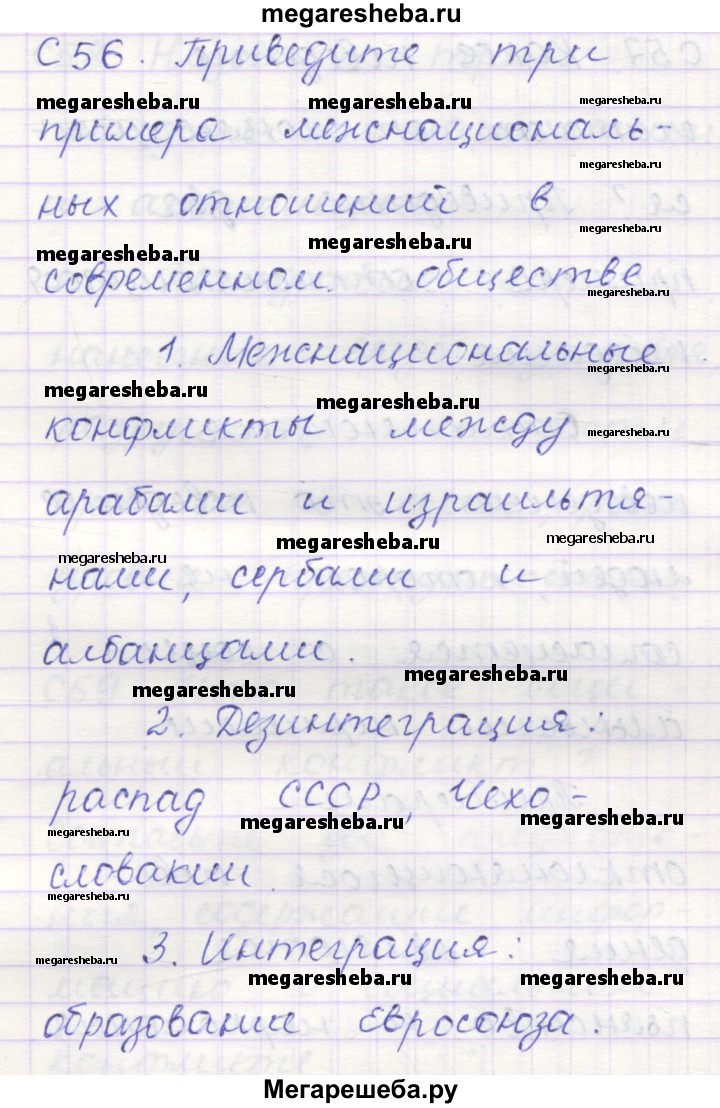 megaresheba.ru
С 56. Приведите три
megaresheba.ru megaresheba.ru megaresheba.ru
примера межнациональ-
megaresheba.ru
ных отношений в
megaresheba.ru megaresheba.ru
современном обществе
megaresheba.ru
1. Межнациональные
megaresheba.ru
megaresheba.ru megaresheba.ru
конфликты между
megaresheba.ru
арабами и израильтя-
megaresheba.ru megaresheba.ru megaresheba.ru
нами, сербами и
албанцами.
megaresheba.ru megaresheba.ru
2. Дезинтеграция:
распад СССР, Чехо-
megaresheba.ru megaresheba.ru megaresheba.ru
словакии
megaresheba.ru
3. Интеграция:
megaresheba.ru megaresheba.ru megaresheba.ru
образование Евросоюза.
Мегарешеба.ру